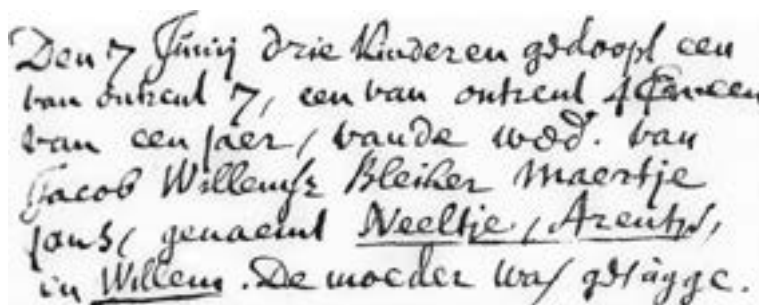 Den 7 Junij drie kinderen gedoopt een
van ontrent 7, een van ontrent 4 en een
van een jaer, vande wed. van
Jacob Willemsz Bleiker Maertje
Jans, genaemt Neeltje, Arentje,
en Willem. De moeder was getuyge.